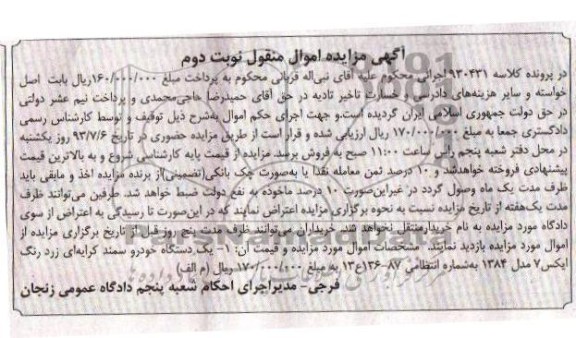 آگهی مزایده اموال منقول نوبت دوم
در پرونده کلاسه ۹۳۰۴۳۱اجرائی محکوم علیه آقای نبی‌اله قربانی محکوم به پرداخت مبلغ ۱۶۰/۰۰۰/۰۰۰ریال بابت اصل
خواسته و سایر هزینه‌های دادرسی و خسارت تاخیر تادیه در حق آقای حمیدرضا حاجی‌محمدی و پرداخت نیم عشر دولتی
در حق دولت جمهوری اسلامی ایران گردیده است.و جهت اجرای حکم اموال به‌شرح ذیل توقیف و توسط کارشناس رسمی
دادگستری جمعا به مبلغ ۱۷۰/۰۰۰/۰۰۰ ریال ارزیابی شده و قرار است از طریق مزایده حضوری در تاریخ ۹۳/۷/۶ روز یکشنبه
در محل دفتر شعبه پنجم راس ساعت ۱۱:۰۰ صبح به‌فروش برسد. مزایده از قیمت پایه کارشناسی شروع و به بالاترین قیمت
پیشنهادی فروخته خواهدشد و ۱۰ درصد ثمن معامله نقدا یا به‌صورت چک بانکی(تضمینی)از برنده مزایده اخذ و مابقی باید
ظرف مدت یک ماه وصول گردد در غیراین‌صورت ۱۰ درصد ماخوذه به نفع دولت ضبط خواهد شد. طرفین می‌توانند ظرف
مدت یک‌هفته از تاریخ مزایده نسبت به نحوه برگزاری مزایده اعتراض نمایند که در این‌صورت تا رسیدگی به اعتراض از سوی
دادگاه مورد مزایده به نام خریدارمنتقل نخواهد شد. خریداران می‌توانند ظرف مدت پنج روز قبل از تاریخ برگزاری مزایده از
اموال مورد مزایده بازدید نمایند. مشخصات اموال مورد مزایده و قیمت آن: ۱- یک دستگاه خودرو سمند کرایه‌ای زرد رنگ
ایکس۷ مدل ۱۳۸۴ به‌شماره انتظامی ۸۷-۱۳۶ع۱۳ به مبلغ ۱۷۰/۰۰۰/۰۰۰ریال (م الف)
فرجی- مدیراجرای احکام شعبه پنجم دادگاه عمومی زنجان